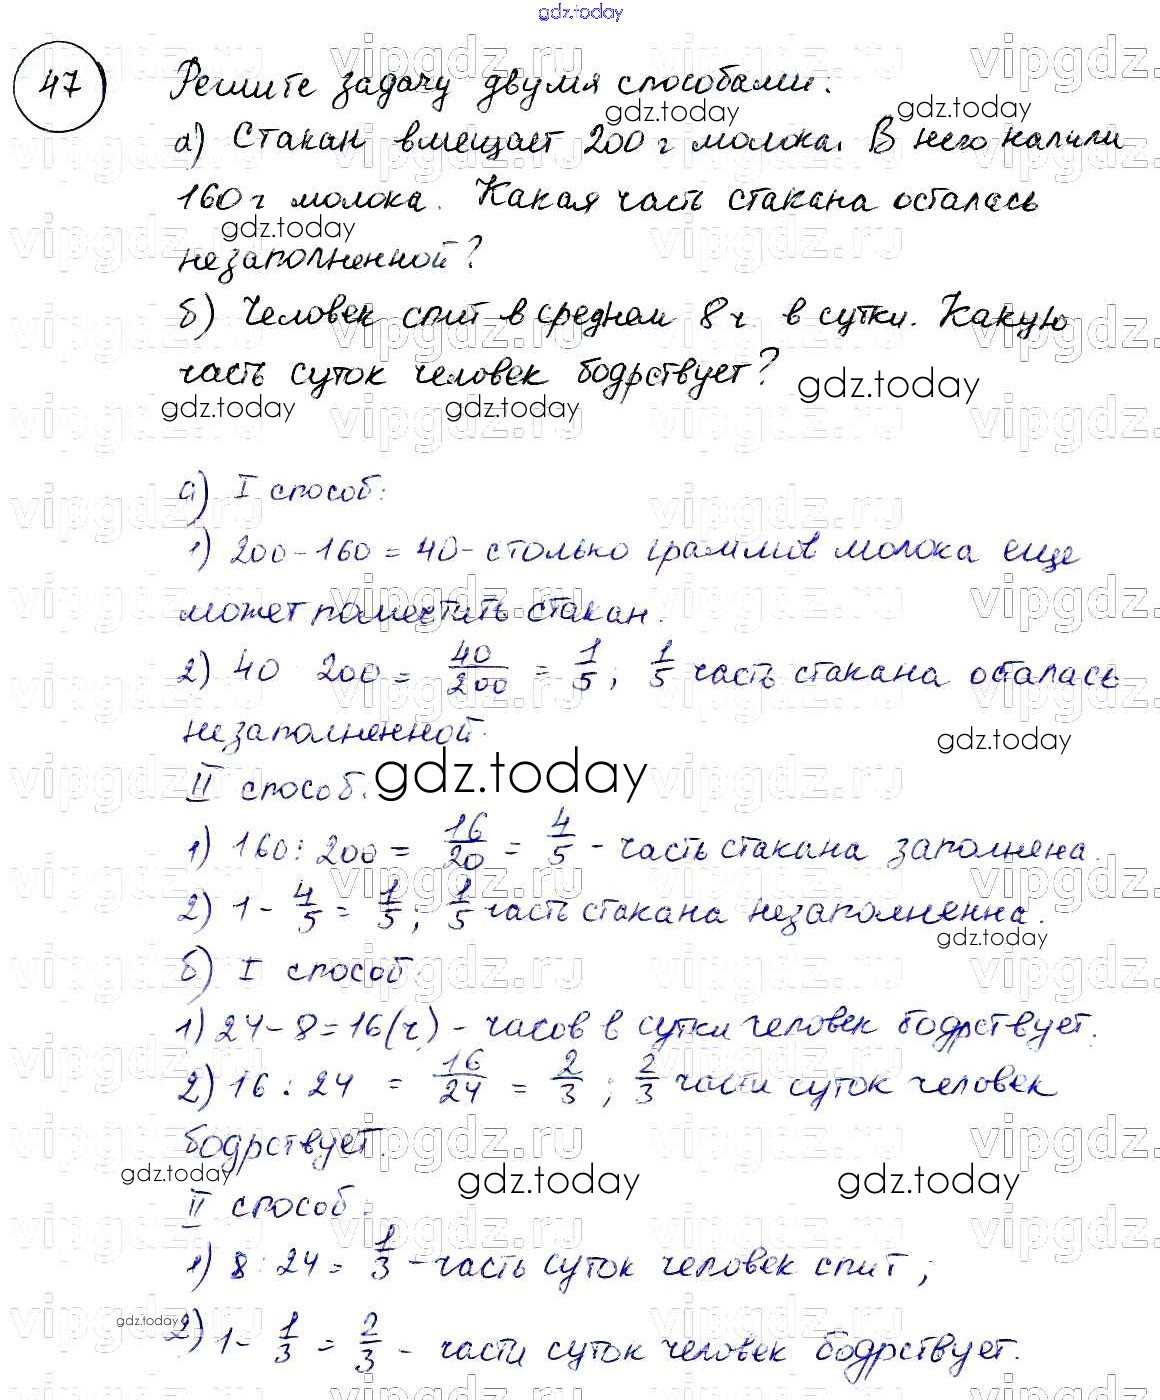 gdz.today
47 Решите задачу двумя способами:
а) Стакан вмещает 200 г молока. В него налили
160 г молока. Какая часть стакана осталась
незаполненной?
б) Человек спит в среднем 8 ч в сутки. Какую
часть суток человек бодрствует?
а) I способ:
1) 200 - 160 = 40 - столько граммов молока еще
может поместить стакан.
2) 40 200 = 40/200 = 1/5; 1/5 часть стакана осталась
незаполненной.
II способ.
1) 160 : 200 = 16/20 = 4/5 - часть стакана заполнена.
2) 1 - 4/5 = 1/5; 1/5 часть стакана незаполненна.
б) I способ
1) 24 - 8 = 16 (ч) - часов в сутки человек бодрствует.
2) 16 : 24 = 16/24 = 2/3; 2/3 части суток человек
бодрствует.
II способ.
1) 8 : 24 = 1/3 - часть суток человек спит;
2) 1 - 1/3 = 2/3 - части суток человек бодрствует.